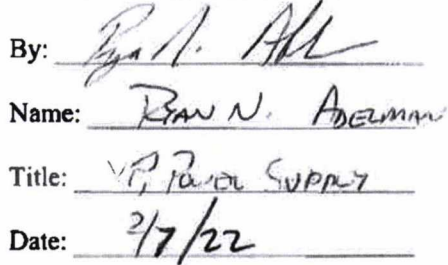 By: Ryan N. Adel
Name: RYAN N. ADELMAN
Title: VP, POWER SUPPLY
Date: 2/7/22